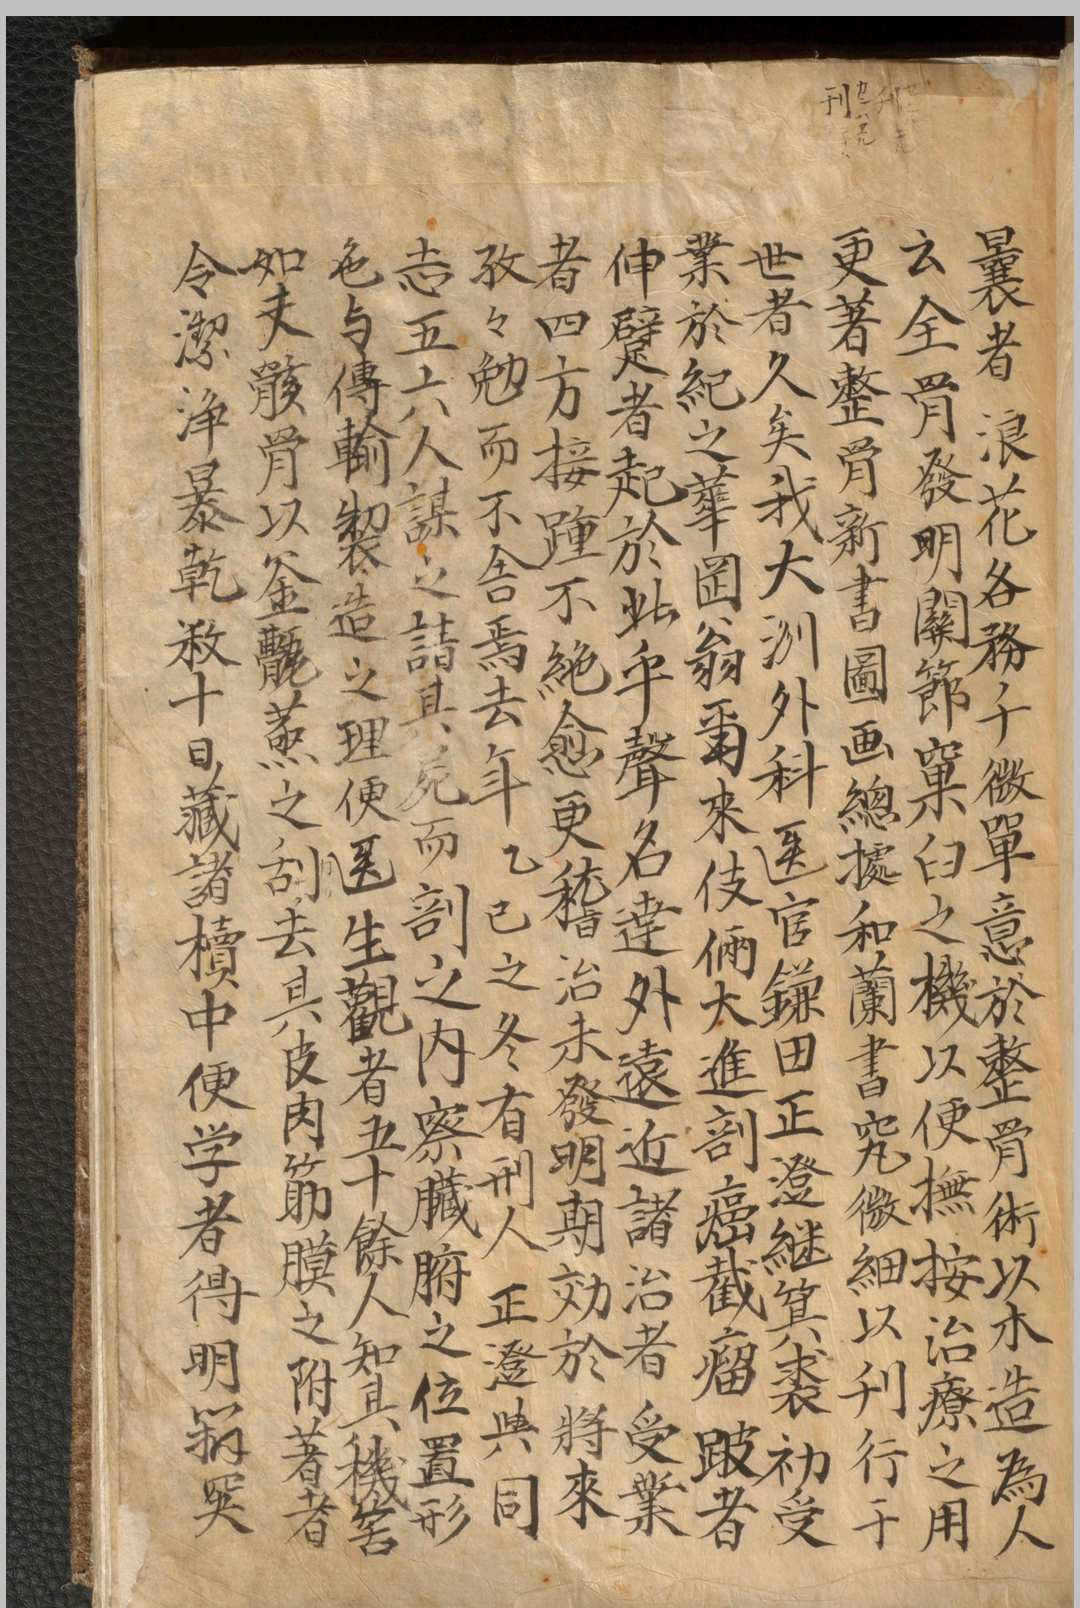 曩者浪花各務子微單意於整骨術以木造為人
云全骨發明關節窠臼之機以便撫按治療之用
更著整骨新書圖画總據和蘭書究微細以刊行于
世者久矣我大洲外科医官鎌田正澄継箕裘初受
業於紀之華岡翁爾来伎倆大進剖癌截瘤跛者
伸躄者起於此乎聲名達外遠近諸治者受業
者四方接踵不絶愈更稽治未發明期効於將來
孜々勉而不舍焉去年乙巳之冬有刑人正澄與同
志五六人謀之請其屍而剖之内察臓腑之位置形
色与傳輸製造之理便医生觀者五十餘人知其機
如夫骸骨以釜甑蒸之刮去其皮肉筋膜之附著者
令潔浄暴乾数十日藏諸櫝中便学者得明